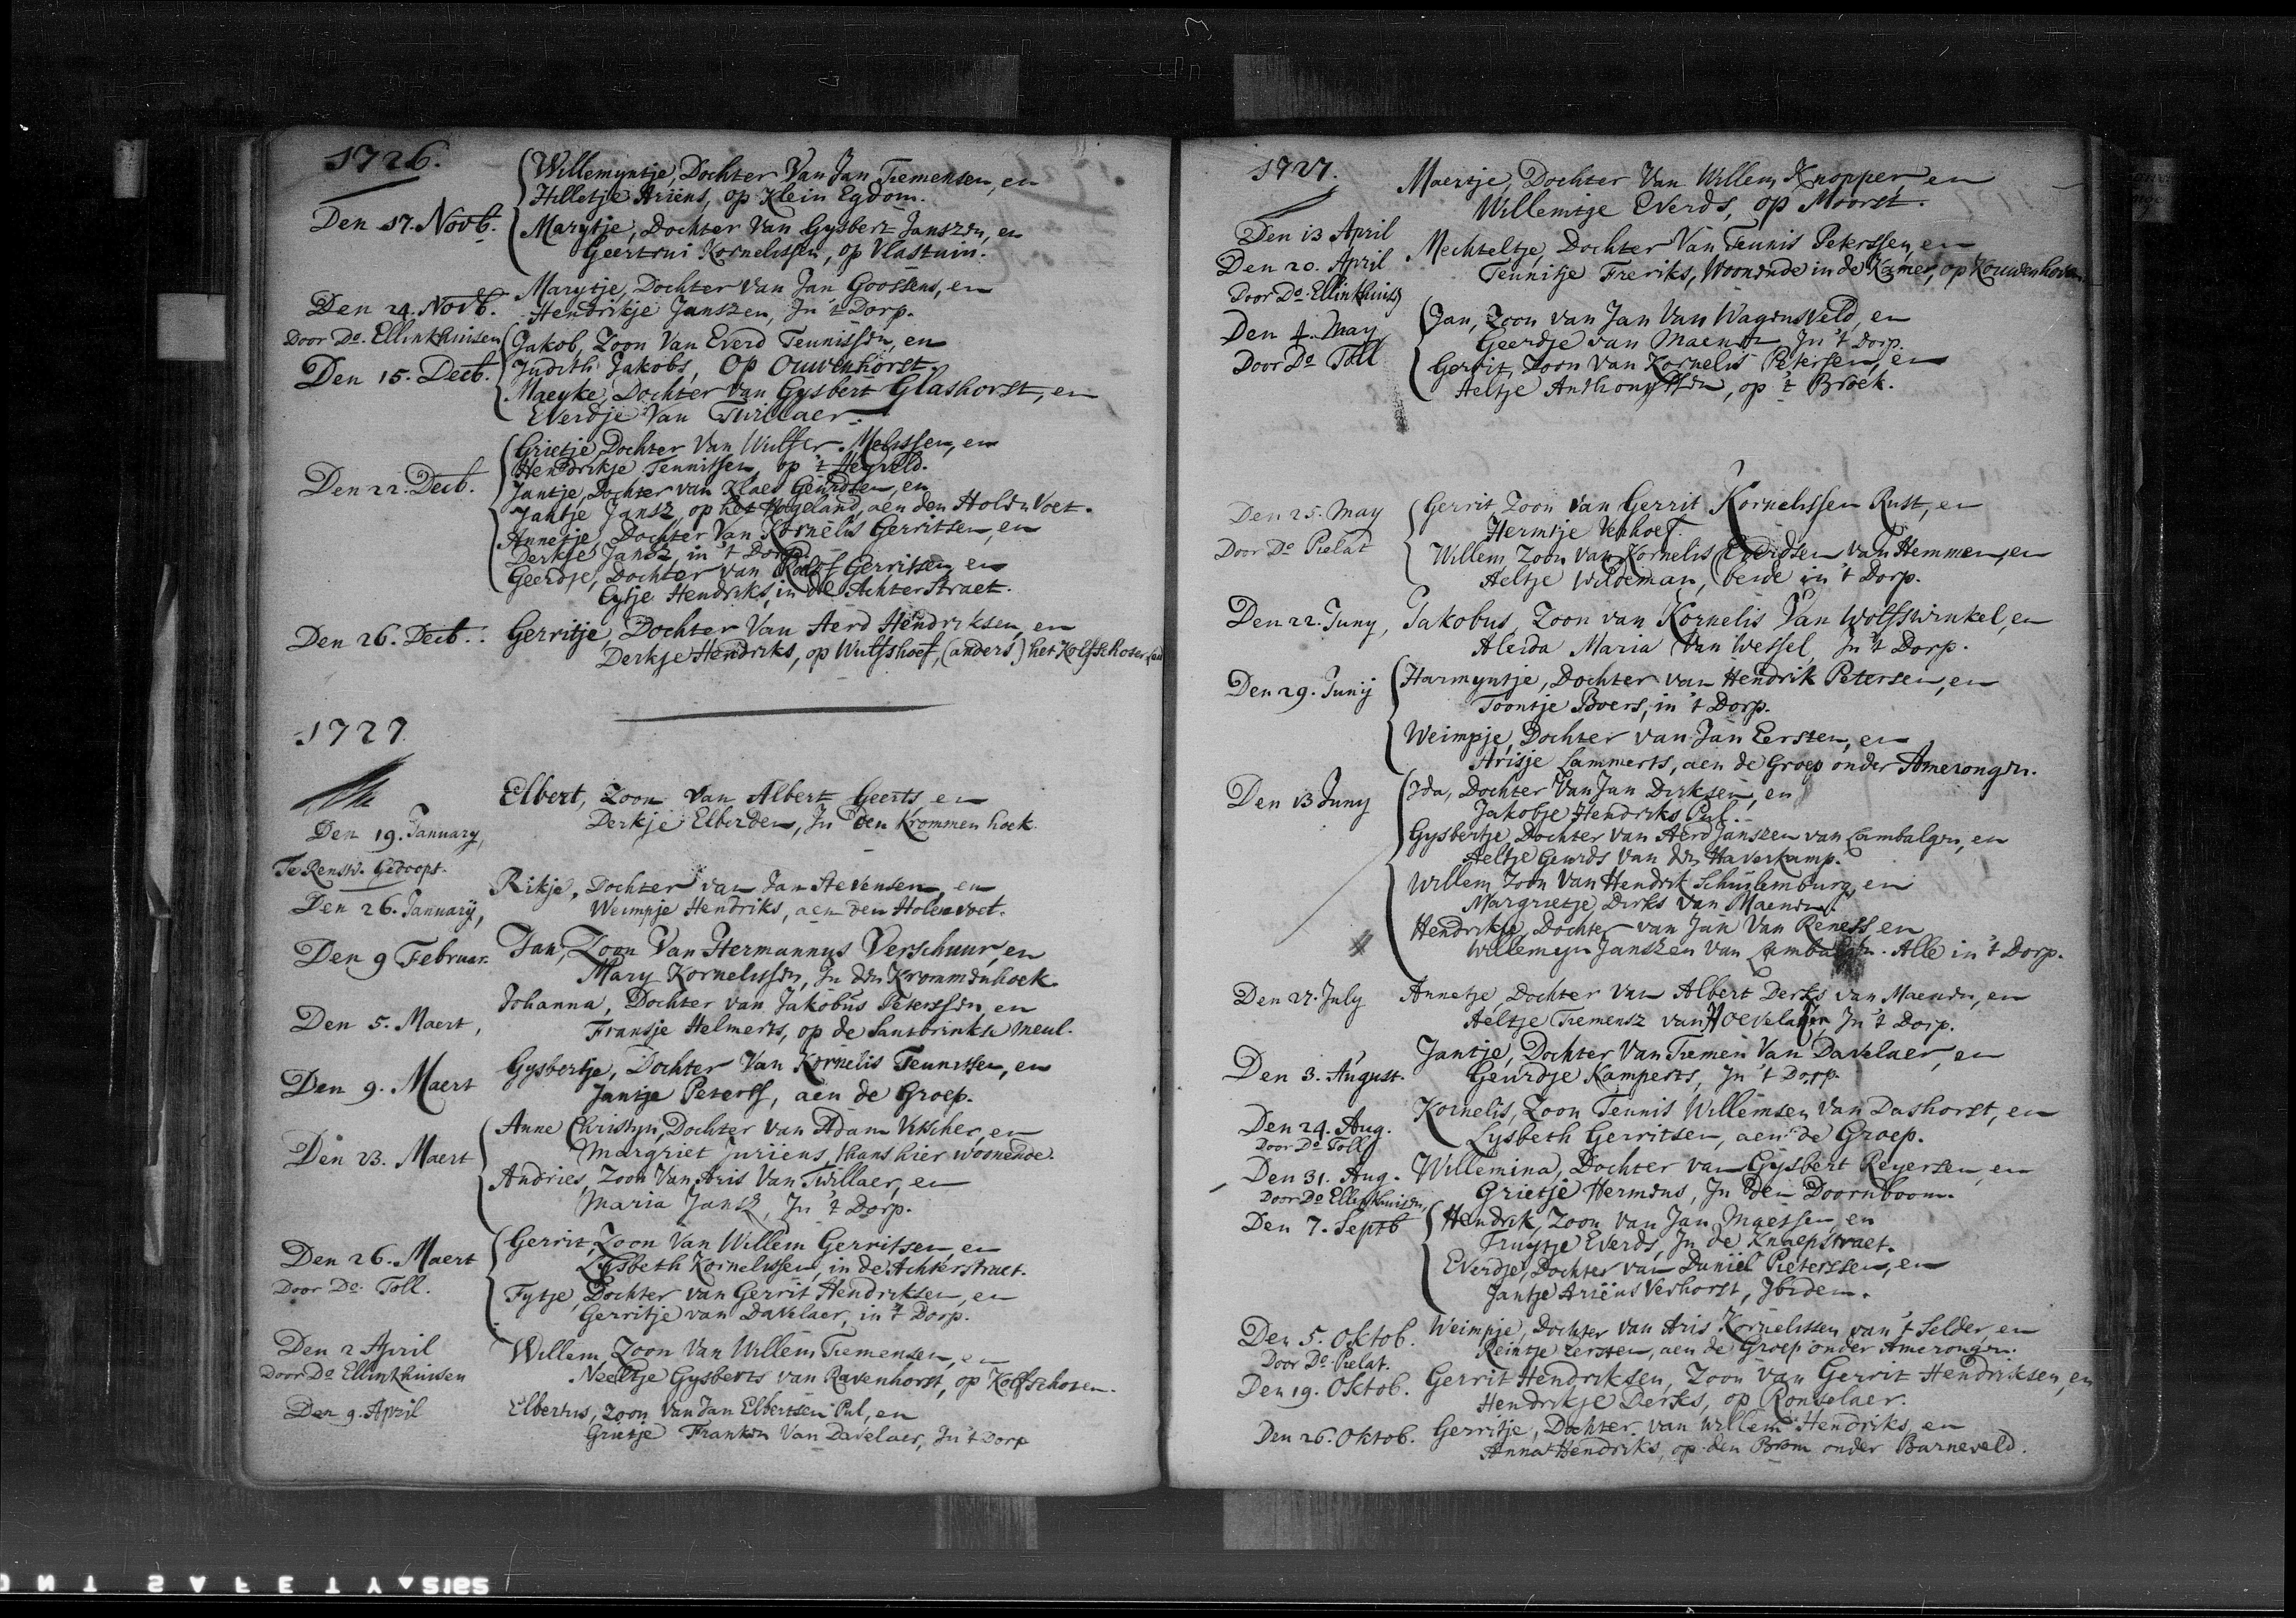 1726.
Willemyntje, Dochter Van Jan Tiemensen, en
Hilletje Ariens, op Klein Egdom.
Den 17. Novb.
Marytje, Dochter Van Gysbert Janszen, en
Geertrui Kornelissen, op Vlastuin.
Marytje, Dochter van Jan Goossens, en
Den 24. Novb.
Hendrikje Janszen, In 't Dorp.
Door Do. Ellinkhuisen
Jakob, Zoon Van Everd Teunissen, en
Den 15. Decb.
Judith Jakobs, Op Ouwenhorst.
Maeyke, Dochter van Gysbert Glashorst, en
Everdje Van Twillaer.
Grietje, Dochter Van Wulfer Melissen, en
Hendrikje Teunissen, op 't Heyveld.
Den 22. Decb.
Jantje, Dochter van Klaes Geurdsen, en
Jantje Jansz, op het Hogeland, aen den Holen Voet.
Annetje, Dochter Van Kornelis Gerritsen, en
Derkje Jansz, in 't Dorp.
Geerdje, Dochter van Roelof Gerritsen, en
Eytje Hendriks, in de Achterstraet.
Den 26. Decb.
Gerritje, Dochter Van Aerd Hendriksen, en
Derkje Hendriks, op Wulfshoef, (anders) het Kolfschoten
1727
Elbert, Zoon van Albert Geerts en
Derkje Elberden, In Den Krommen hoek.
Den 19. January,
Te Rensw. Gedoopt.
Rikje, Dochter van Jan Stevensen, en
Den 26. January,
Weimpje Hendriks, aen den Holenvoet.
Den 9 Februar.
Jan, Zoon Van Hermannus Verschuur, en
Mary Kornelissen, In den Krommenhoek.
Johanna, Dochter van Jakobus Peterssen, en
Den 5. Maert,
Fransje Helmerts, op de Santbrinkse meul.
Gysbertje, Dochter Van Kornelis Teunissen, en
Den 9. Maert
Jantje Peterss, aen de Groep.
Anne Christyn, Dochter van Adam Visscher, en
Den 23. Maert
Margriet Juriens, thans hier woonende.
Andries, Zoon Van Aris Van Twillaer, en
Maria Jansz, In 't Dorp.
Gerrit, Zoon Van Willem Gerritsen, en
Den 26. Maert
Lysbeth Kornelissen, in de Achterstraet.
Door Do. Toll.
Fytje, Dochter van Gerrit Hendriksen, en
Gerritje van Davelaer, in 't Dorp.
Den 2 April
Willem Zoon Van Willem Tiemensen, en
Door Do Ellinkhuisen
Neeltje Gysberts van Ravenhorst, op Kolfschoten.
Den 9. April
Elbertus, Zoon Van Jan Elbertsen Pul, en
Grietje Franken Van Davelaer, In 't Dorp
1727.
Maertje, Dochter Van Willem Knopper, en
Willemtje Everds, op Moorst.
Den 13 April
Den 20. April
Mechteltje, Dochter Van Teunis Peterssen, en
Teunitje Freriks, Woonende in de Kamer, op Kouwenhoven
Door Do. Ellinkhuisen
Jan, Zoon van Jan Van Wagensveld, en
Den 4. May
Geerdje van Maenen, In 't Dorp.
Door Do Toll
Gerrit, Zoon van Kornelis Petersen, en
Aeltje Anthonyssen, op 't Broek.
Gerrit, Zoon van Gerrit Kornelissen Rust, en
Den 25. May
Hermtje Verhoef.
Door Do Pielat
Willem, Zoon van Kornelis Everdsen van Hemmen, en
Aeltje Wildeman, beide in 't Dorp.
Den 22. Juny,
Jakobus, Zoon van Kornelis Van Wolfswinkel, en
Aleida Maria Van Wessel, In 't Dorp.
Den 29. Junij
Harmyntje, Dochter van Hendrik Petersen, en
Toontje Boers, in 't Dorp.
Weimpje, Dochter van Jan Eersten, en
Arisje Lammerts, aen de Groep onder Amerongen.
Den 13 Juny
Ida, Dochter Van Jan Dirksen, en
Jakobje Hendriks Pul.
Gysbertje, Dochter van Aerd Janszen van Lambalgen, en
Aeltje Geurds van den Haverkamp.
Willem, Zoon Van Hendrik Schuilemburg, en
Margrietje Dirks Van Maenen.
Hendrikje, Dochter van Jan Van Reness, en
Willemyn Janszen van Lambalgen. Alle in 't Dorp.
Den 27. July
Annetje, Dochter Van Albert Derks van Maenen, en
Aeltje Tiemensz van Hoevelaken, In 't Dorp.
Jantje, Dochter Van Tiemen Van Davelaer, en
Den 3. August.
Geurdje Kamperts, In 't Dorp.
Kornelis, Zoon Teunis Willemsen Van Dashorst, en
Den 24. Aug.
Lysbeth Gerritsen, aen de Groep.
Door Do Toll
Den 31. Aug.
Willemina, Dochter van Gysbert Reyersen, en
Grietje Hermens, In den Doornboom.
Door Do Ellinkhuisen
Den 7. Septb
Hendrik, Zoon van Jan Maessen, en
Truytje Everds, In de Knaepstraet.
Everdje, Dochter van Daniël Pieterssen, en
Jantje Ariëns Verhorst, Ibidem.
Den 5. Oktob.
Weimpje, Dochter van Aris Kornelissen van 't Selder, en
Reintje Eersten, aen de Groep onder Amerongen.
Door Do Pielat.
Den 19. Oktob.
Gerrit Hendriksen, Zoon van Gerrit Hendriksen, en
Hendrikje Derks, op Ronselaer.
Den 26. Oktob.
Gerritje, Dochter van Willem Hendriks, en
Anna Hendriks, op den Brom onder Barneveld.
SAFETY 5125